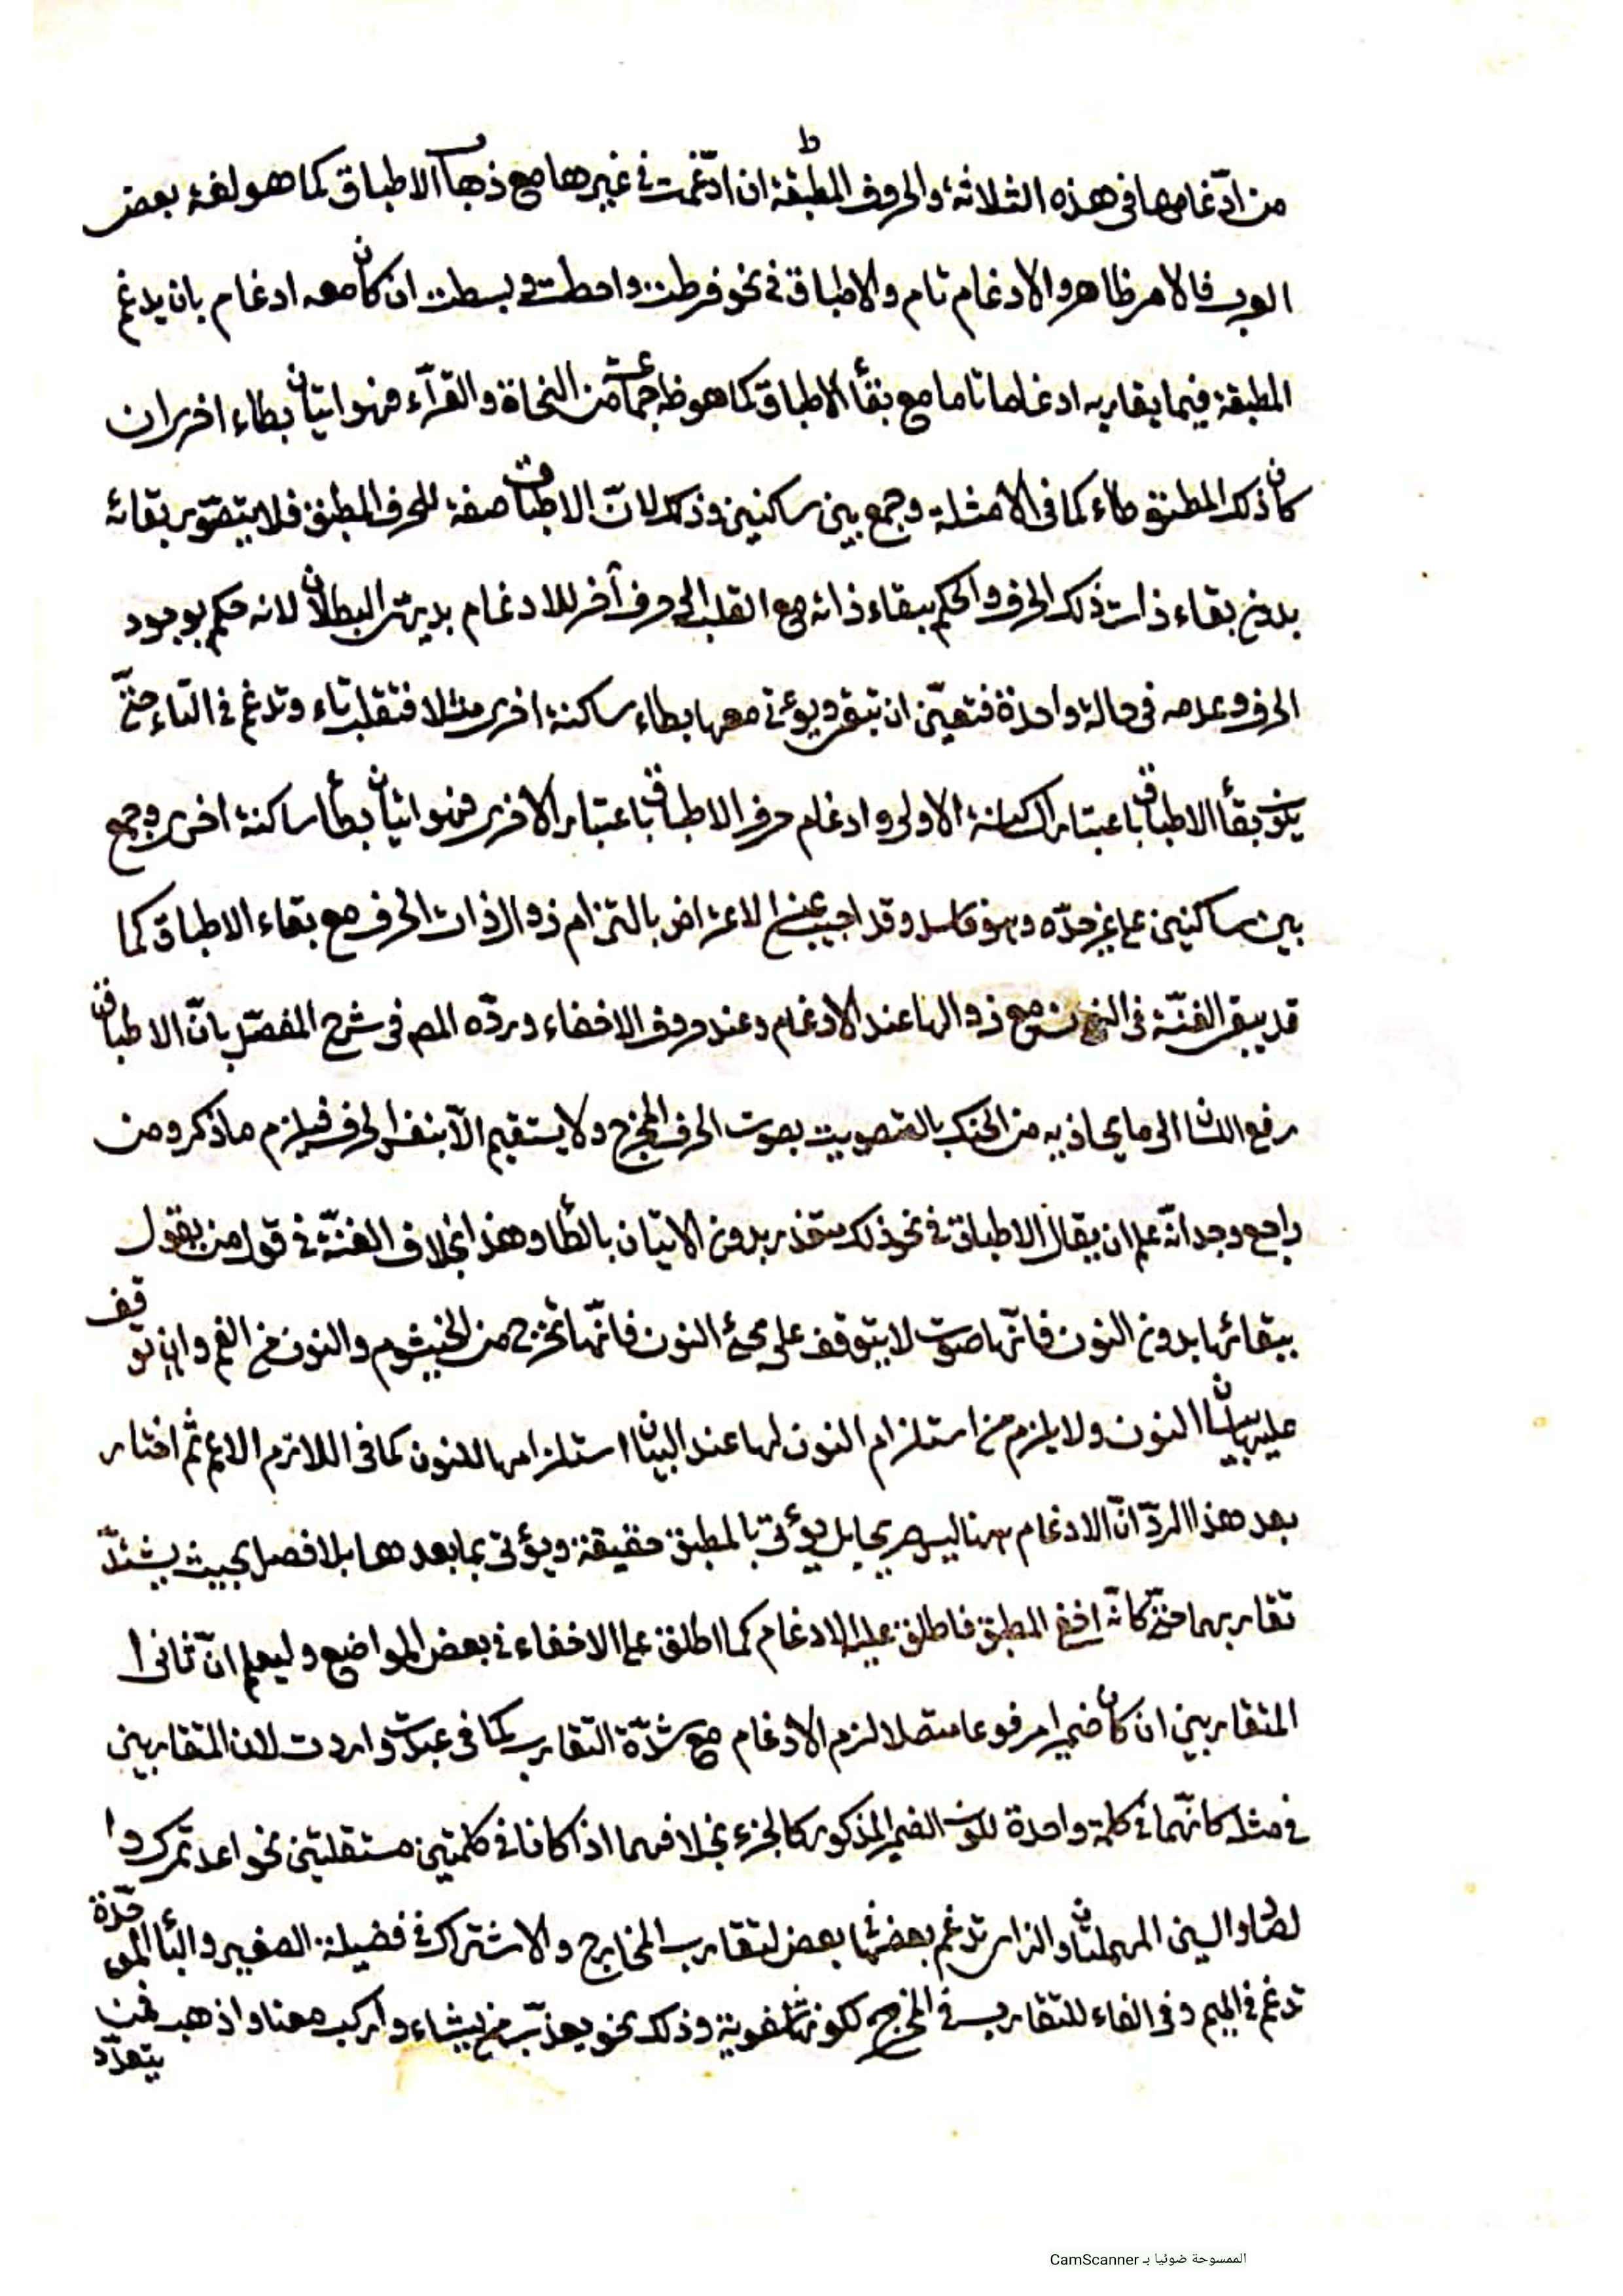 من ادّغامها فى هذه الثلاثة والحروف المطبقة ان ادّغمت فى غيرها مع ذهاب الاطباق كما هو لغة بعض
العرب فالامر ظاهر والادغام تام والاطباق فى نحو فرطت واحطت وبسطت ان كان معه ادغام بان يدغم
المطبقة فيما يقاربه ادغاما تاما مع بقأ الاطباق كما هو ظ جماعة من النحاة والقرآء فهو اتيان بطاء اخر ان
كان ذلك المطبق طاء كما فى الامثلة وجمع بين ساكنين وذلك لانّ الاطباق صفة للحرف المطبق فلا يتصوّر بقائه
بدون بقاء ذات ذلك الحرف والحكم ببقاء ذاته مع القلب الى حرف آخر للادغام بديهىّ البطلان لانه حكم بوجود
الحرف وعدمه فى حالة واحدة فتعيّن ان تبقى ويؤتى معها بطاء ساكنة اخرى مثلا فتقلب تاء وتدغم فى التاء حتّى
بقأ الاطباق باعتبار الاولى وادغام حرف الاطباق باعتبار الاخرى فهو اتيان بطأ ساكنة اخرى وجمع
بين ساكنين على غير حدّه وهو فاسد وقد اجيب عن الاعتراض بالتزام زوال ذات الحرف مع بقاء الاطباق كما
قد يبقى الغنّة فى النون مع زوالها عند الادغام وعند حروف الاخفاء وردّه المص فى شرح المفصّل بانّ الاطباق
رفع اللسان الى ما يحاذيه من الحنك بالتصويت بصوت الحرف المخرج ولا يستقيم الّا بنفس الحرف فيلزم ما ذكر ومن
راجع وجدانه علم ان بقاء الاطباق فى نحو ذلك متعذر بدون الاتيان بالطأ وهذا بخلاف الغنّة فى قول من يقول
ببقائها بدون النون فانّها صوت لا يتوقف على مجئ النون فانّها تخرج من الخيشوم والنون من الفم وان توقف
عليها بيان النون ولا يلزم من استلزام النون لها عند البيان استلزامها للنون كما فى اللازم الاعم ثم اختار
بعد هذا الردّ انّ الادغام ههنا ليس صريحا بل يؤتى بالمطبق حقيقة ويؤتى بما بعدها بلا فصل بحيث يشتدّ
تقاربهما حتّى كانّه اخفى المطبق فاطلق عليه الادغام كما اطلق على الاخفاء فى بعض المواضع وليعلم انّ ثانى ا
المتقاربين ان كان ضميرا مرفوعا متصلا لزم الادغام مع شدّة التقارب كما فى عبدت واردت لان المتقاربين
فى مثله كانّهما فى كلمة واحدة لكون الضمير المذكور كالجزء بخلافهما اذا كانا فى كلمتين مستقلتين نحو اعد تمرك وا
لصاد والسين المهملتان والزاى تدغم بعضها بعض لتقارب المخارج والاشتراك فى فضيلة الصفير والبأ الموحّدة
تدغم فى الميم وفى الفاء للتقارب فى المخرج لكونها شفوية وذلك نحو يعذّب من يشاء واركب معنا واذهب فمن